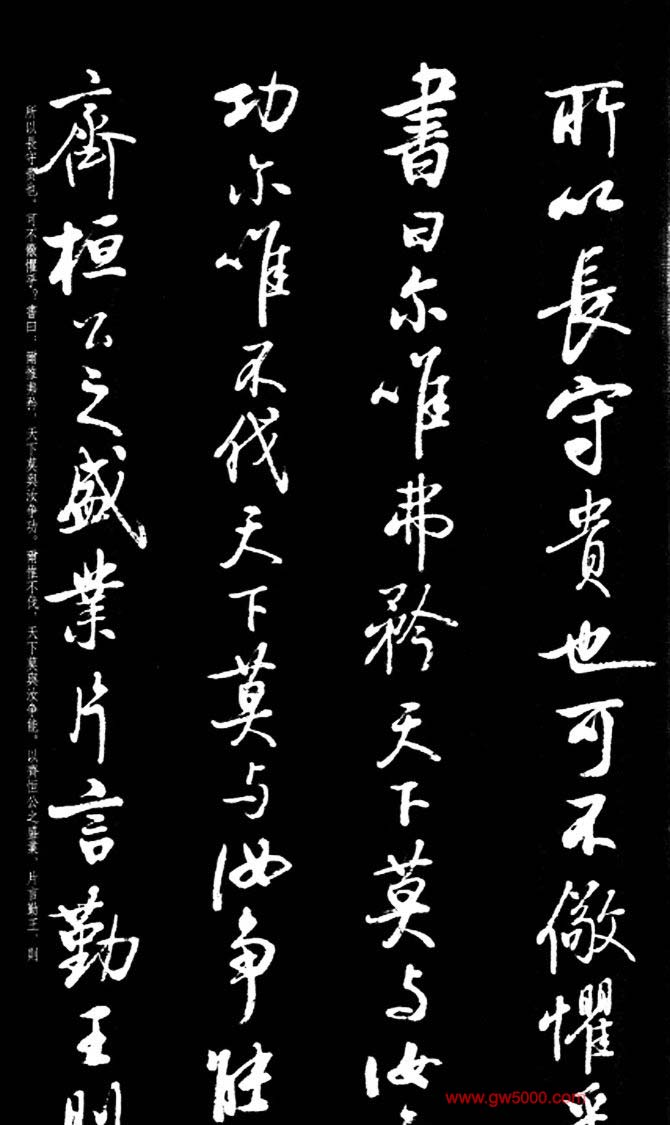 所以長守貴也可不儆懼乎
書曰尓唯弗矜天下莫与汝争
功尓唯不伐天下莫与汝争能
齊桓公之盛業片言勤王則
所以長守貴也，可不儆懼乎？書曰：爾惟弗矜，天下莫與汝争功。爾惟不伐，天下莫與汝争能。以齊恒公之盛業，片言勤王，則
www.gw5000.com